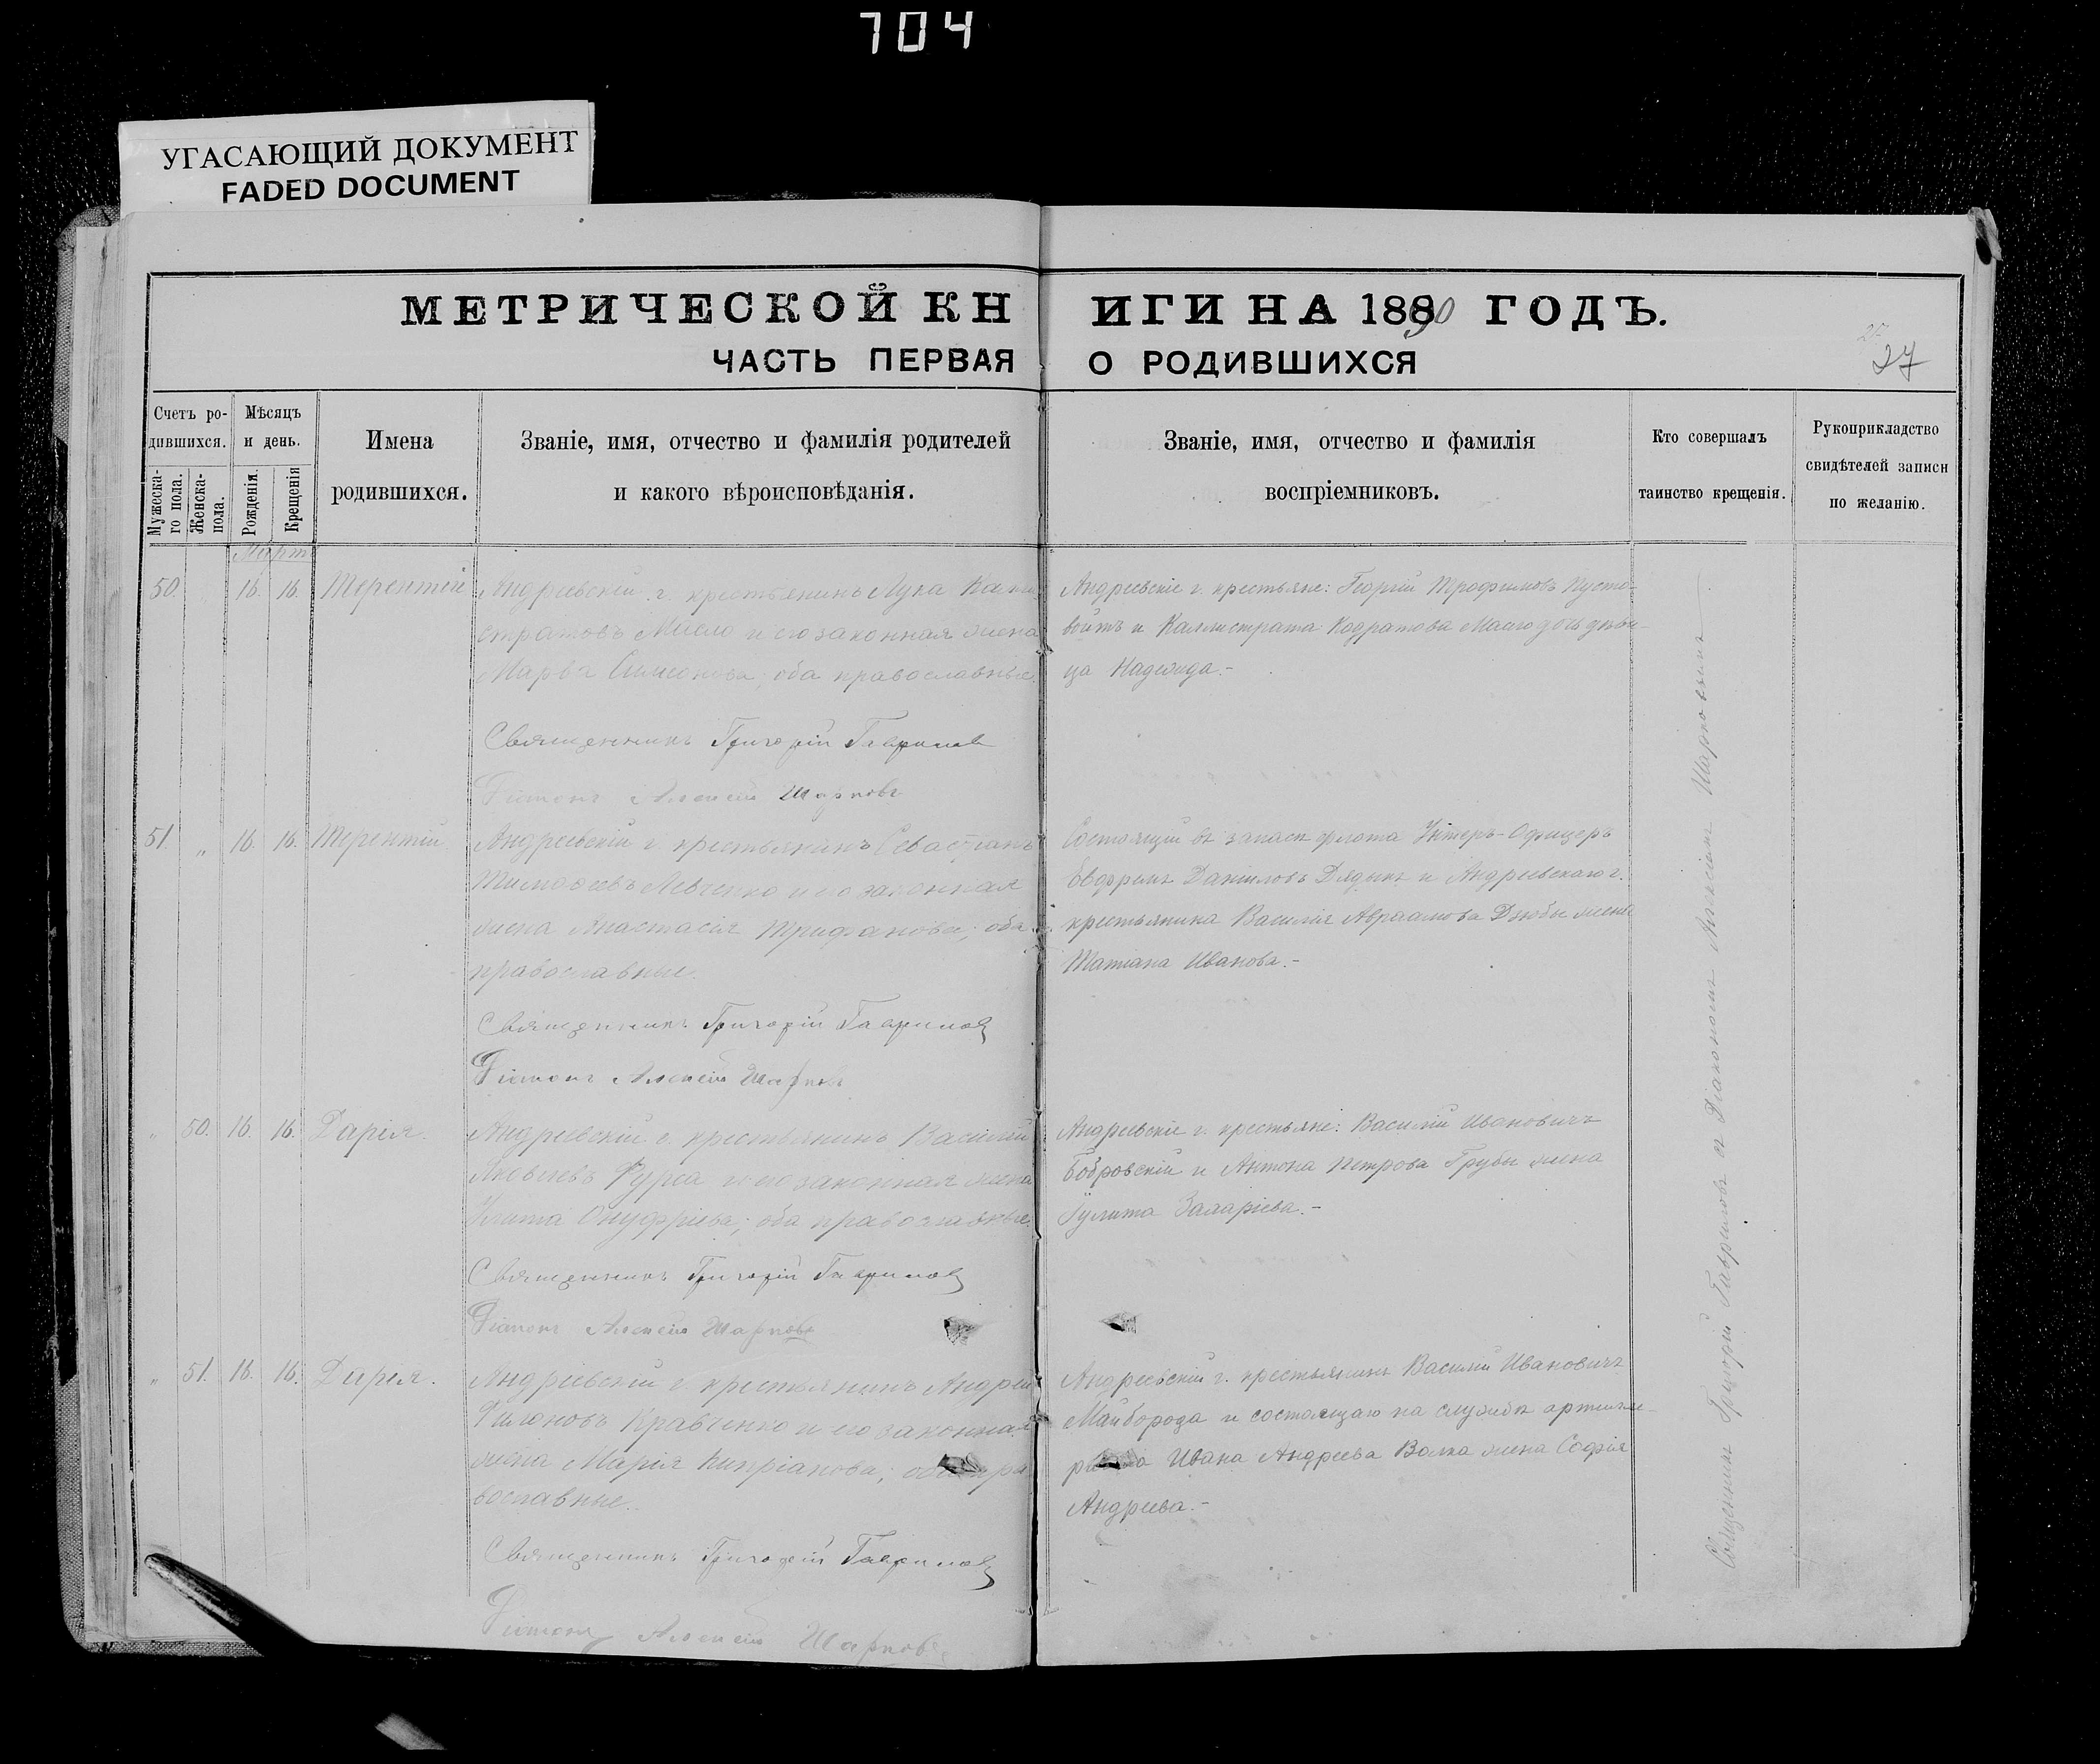 704
УГАСАЮЩИЙ ДОКУМЕНТ
FADED DOCUMENT
МЕТРИЧЕСКОЙ КНИГИ НА 1890 ГОДЪ.
ЧАСТЬ ПЕРВАЯ О РОДИВШИХСЯ
27
27
Счетъ ро-
дившихся.
Мужеска-
го пола.
Женска-
пола.
Мѣсяцъ
и день.
Рожденія.
Крещенія
Имена
родившихся.
Званіе, имя, отчество и фамилія родителей
и какого вѣроисповѣданія.
Званіе, имя, отчество и фамилія
воспріемниковъ.
Кто совершалъ
таинство крещенія.
Рукоприкладство
свидѣтелей записи
по желанію.
Мартъ
50. 16. 16. Терентій
Андреевскій г. крестьянинъ Лука Калли
стратовъ и его законная жена
Марѳа Симеонова; оба православные.
Священникъ Григорій Гавриловъ
Діаконъ Алексій Шарковъ
Андреевскіе г. крестьяне: Георгій Трофимовъ Пусто-
войтъ и Каллистрата Кодратова дочь дѣви-
ца Надежда.-
51. „ 16. 16. Терентій.
Андреевскій г. крестьянинъ Севастіанъ
Тимоѳеевъ Левченко и его законная
жена Анастасія Трифонова; оба
православные.
Священникъ Григорій Гавриловъ
Діаконъ Алексій Шарковъ
Состоящій въ запасѣ флота Унтеръ-Офицеръ
Евфремъ Даніиловъ Дядыкъ и Андреевскаго г.
крестьянина Василія Авраамова Дзюбы жена
Татіана Иванова.-
„ 50. 16. 16. Дарія.
Андреевскій г. крестьянинъ Василій
Яковлевъ Фурса и его законная жена
Онуфріева; оба православные.
Священникъ Григорій Гавриловъ
Діаконъ Алексій Шарковъ
Андреевскіе г. крестьяне: Василій Ивановичъ
Бобровскій и Антона Петрова Грубы жена
Іулита Захаріева.-
„ 51. 16. 16. Дарія.
Андреевскій г. крестьянинъ Андрей
Филоновъ Кравченко и его законная
жена Марія Кипріанова; оба пра
вославные.
Священникъ Григорій Гавриловъ
Діаконъ Алексій Шарковъ
Андреевскій г. крестьянинъ Василій Ивановичъ
Майборода и состоящаго на службѣ артилле-
риста Ивана Андреева Волка жена Софія
Андреева.-
Священникъ Григорій Гавриловъ съ Діакономъ Алексіемъ Шарковымъ